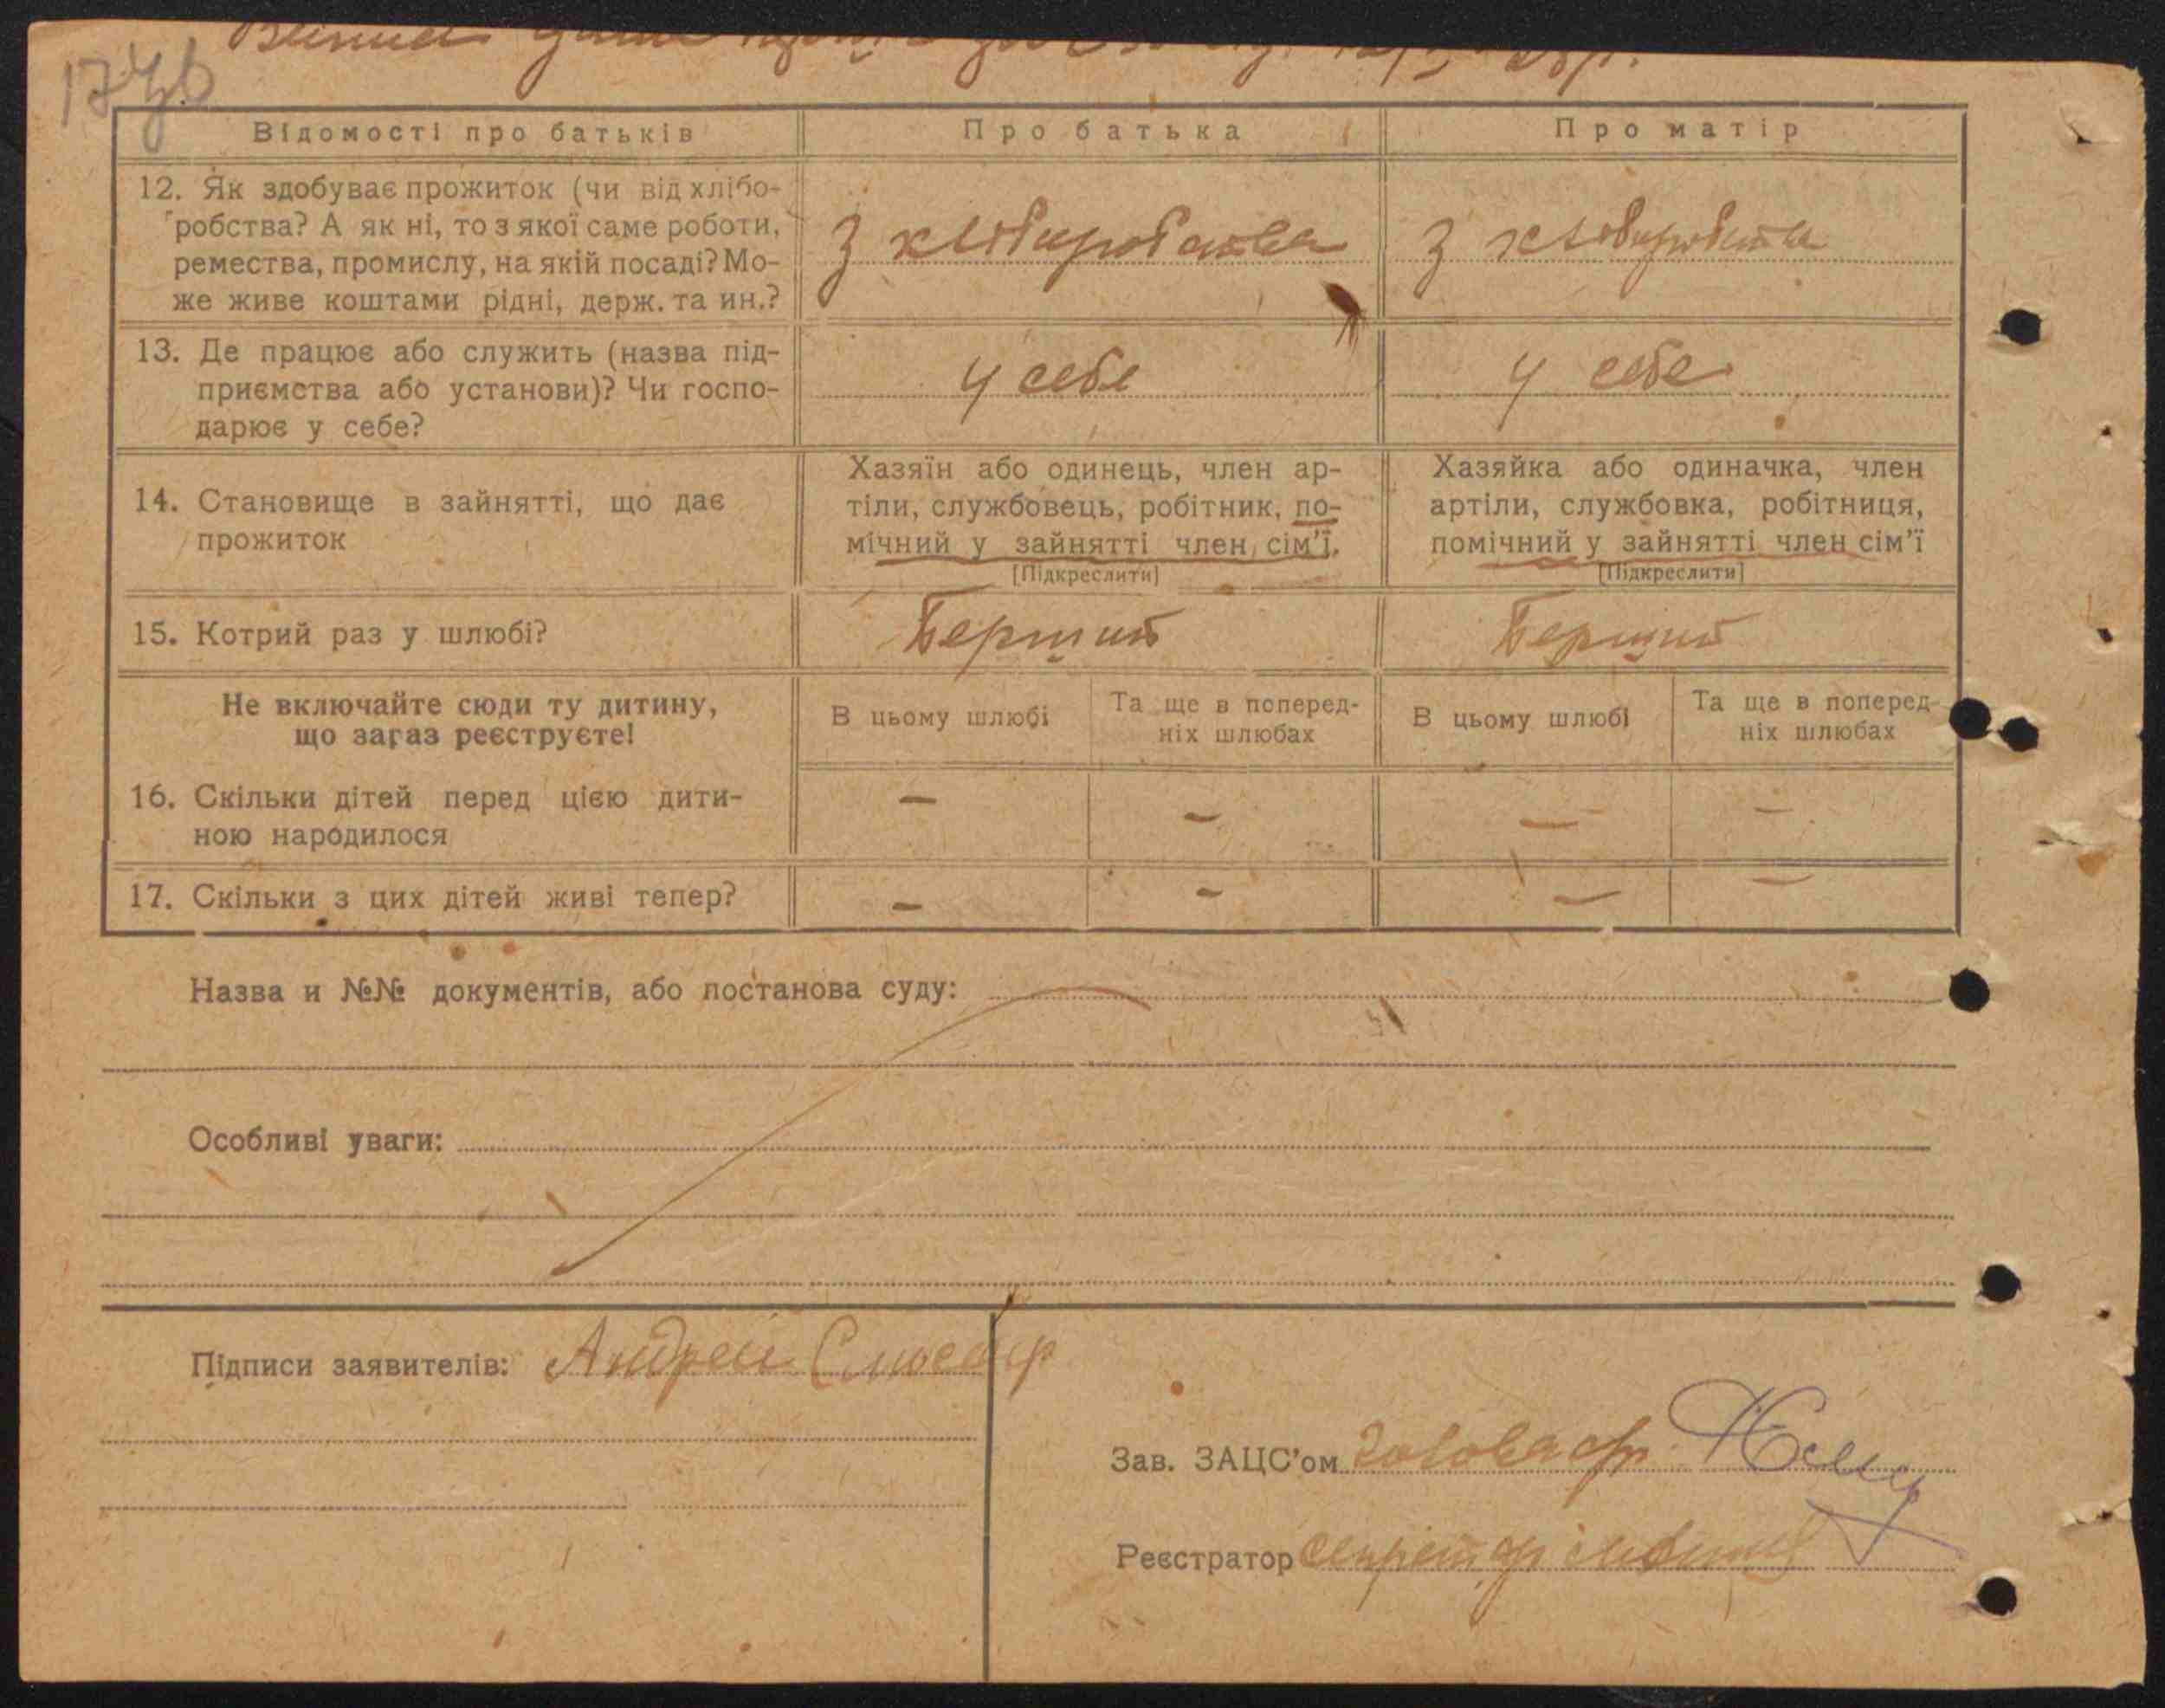 174б
Відомості про батьків
Про батька
Про матір
12. Як здобуває прожиток (чи від хлібо-
робства? А як ні, то з якої саме роботи,
ремества, промислу, на якій посаді? Мо-
же живе коштами рідні, держ. та ин.?
З хліборобства
З хліборобства
13. Де працює або служить (назва під-
приємства або установи)? Чи госпо-
дарює у себе?
У себе
У себе
14. Становище в зайнятті, що дає
прожиток
Хазяїн або одинець, член ар-
тіли, службовець, робітник, по-
мічний у зайнятті член сім'ї.
[Підкреслити]
Хазяйка або одиначка, член
артіли, службовка, робітниця,
помічний у зайнятті член сім'ї
[Підкреслити]
15. Котрий раз у шлюбі?
Перший
Перший
Не включайте сюди ту дитину,
що зараз реєструєте!
В цьому шлюбі
Та ще в поперед-
ніх шлюбах
В цьому шлюбі
Та ще в поперед-
ніх шлюбах
16. Скільки дітей перед цією дити-
ною народилося
— — — —
17. Скільки з цих дітей живі тепер?
— — — —
Назва и №№ документів, або постанова суду:
Особливі уваги:
Підписи заявителів: Андрей
Зав. ЗАЦС'ом голова
Реєстратор секретар